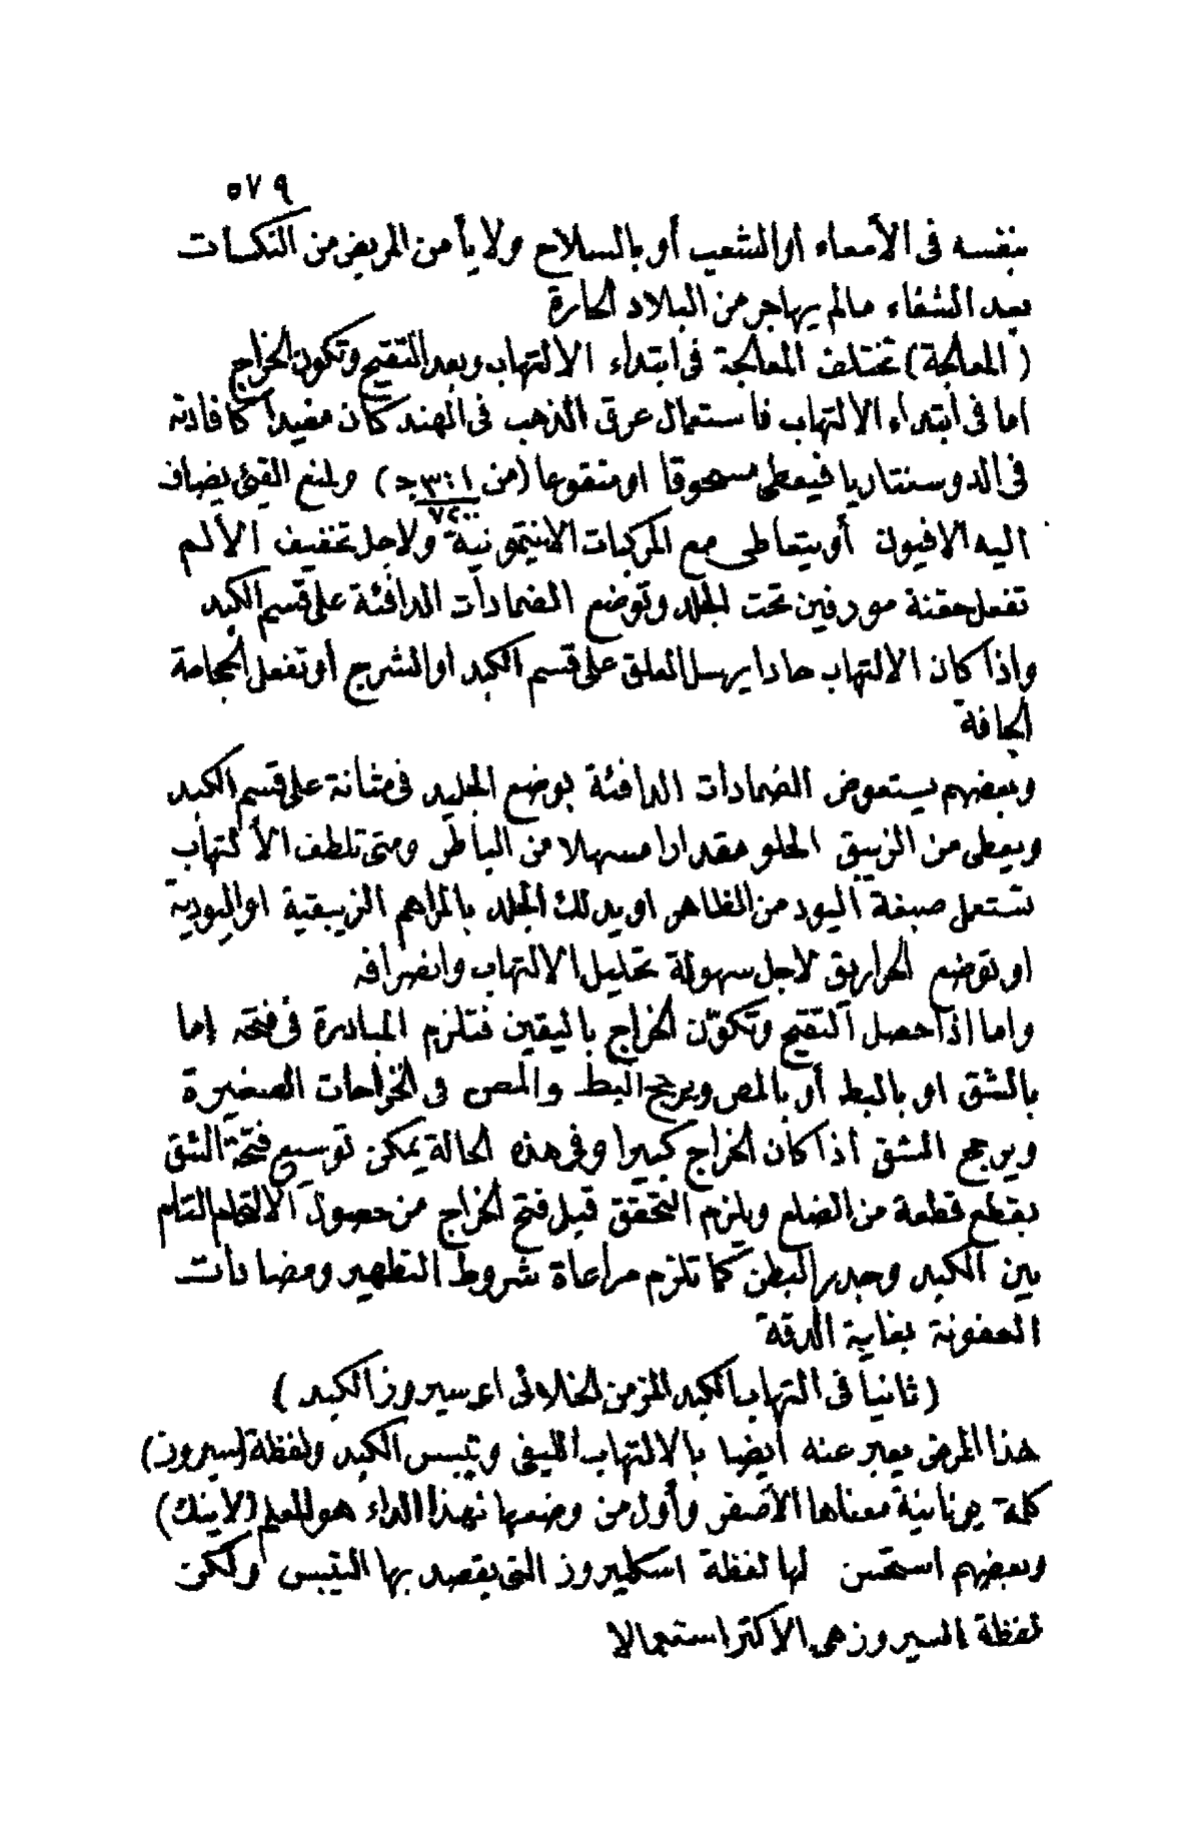 ٥٧٩
بنفسه فى الأمعاء او الشعب أو بالسلاح ولا يأمن المريض من النكسات
بعد الشفاء مالم يهاجر من البلاد الحارة
(المعالجة) تختلف المعالجة فى ابتداء الالتهاب وبعد التقيح وتكون الخراج
اما فى ابتداء الالتهاب فاستعمال عرق الذهب فى الهند كان مفيدا كافادته
فى الدوسنتاريا فيعطى مسحوقا او منقوعا (من ٣:١ جـ / ٧٢٠٠) ولمنع القيئ يضاف
اليه الافيون أو يتعاطى مع المركبات الانتيمونية ولاجل تخفيف الألم
تفعل حقنة مورفين تحت الجلد وتوضع الضمادات الدافئة على قسم الكبد
واذا كان الالتهاب حادا يرسل العلق على قسم الكبد او الشرج أو تفعل الحجامة
الجافة
وبعضهم يستعوض الضمادات الدافئة بوضع الجليد فى مثانة على قسم الكبد
ويعطى من الزيبق الحلو مقدارا مسهلا من الباطن ومتى تلطف الالتهاب
تستعمل صبغة اليود من الظاهر او يدلك الجلد بالمراهم الزيبقية او اليودية
او توضع الحراريق لاجل سهولة تحليل الالتهاب وانصرافه
واما اذا حصل التقيح وتكوّن الخراج باليقين فتلزم المبادرة فى فتحه إما
بالشق او بالبط أو بالمص ويرجح البط والمص فى الخراجات الصغيرة
ويرجح الشق اذا كان الخراج كبيرا وفى هذه الحالة يمكن توسيع فتحة الشق
بقطع قطعة من الضلع ويلزم التحقق قبل فتح الخراج من حصول الالتحام التام
بين الكبد وجدر البطن كما تلزم مراعاة شروط التطهير ومضادات
العفونة بغاية الدقة
(ثانيا فى التهاب الكبد المزمن الخلالى اى سيروز الكبد)
هذا المرض يعبر عنه أيضا بالالتهاب الليفى وتيبس الكبد ولفظة (سيروز)
كلمة يونانية معناها الأصفر وأول من وضعها لهذا الداء هو المعلم (لاينك)
وبعضهم استحسن لها لفظة اسكليروز التى يقصد بها التيبس ولكن
لفظة السيروز هى الاكثر استعمالا